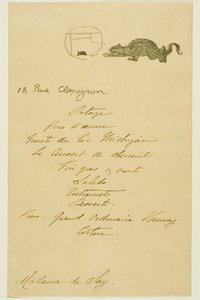 18 Rue Clapeyron
Potage
Hors d'œuvre
Truite du lac Michigan
Le Cuissot de chevreuil
Foie gras en croute
Salade
Entremets
Dessert
Vins. Grand Ordinaire Vouvray
Corton.
Madame de Say.